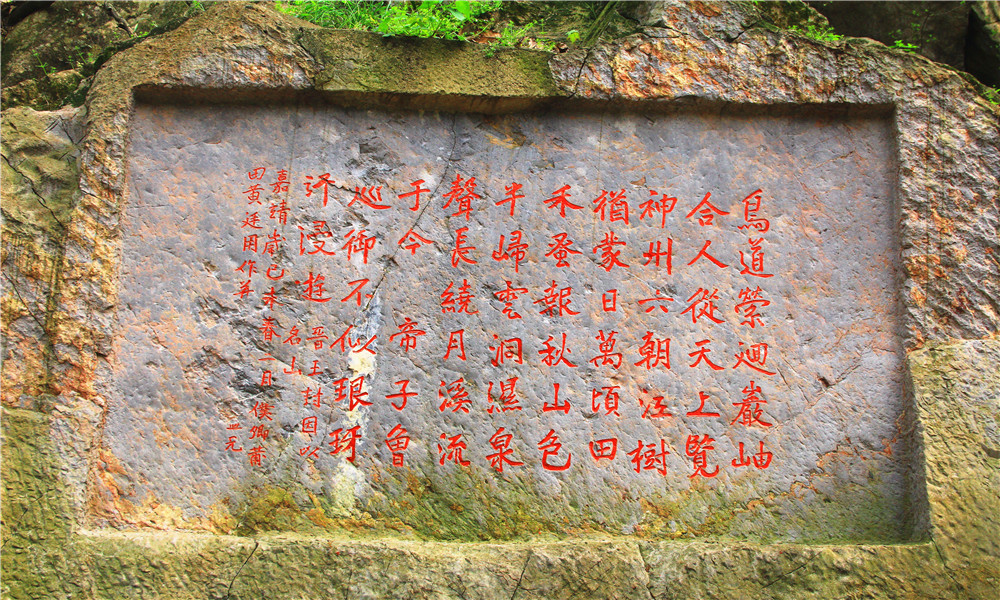 鳥道縈迴巖岫
合人從天上覽
神州六朝江樹
猶蒙日萬頃田
禾蚤報秋山色
半歸雲洞濕泉
聲長繞月溪流
于今帝子會
巡御不似琅琊
浸遊晉王封因以
名山
嘉靖歲己未春二月僕卿莆
田黃廷用作并